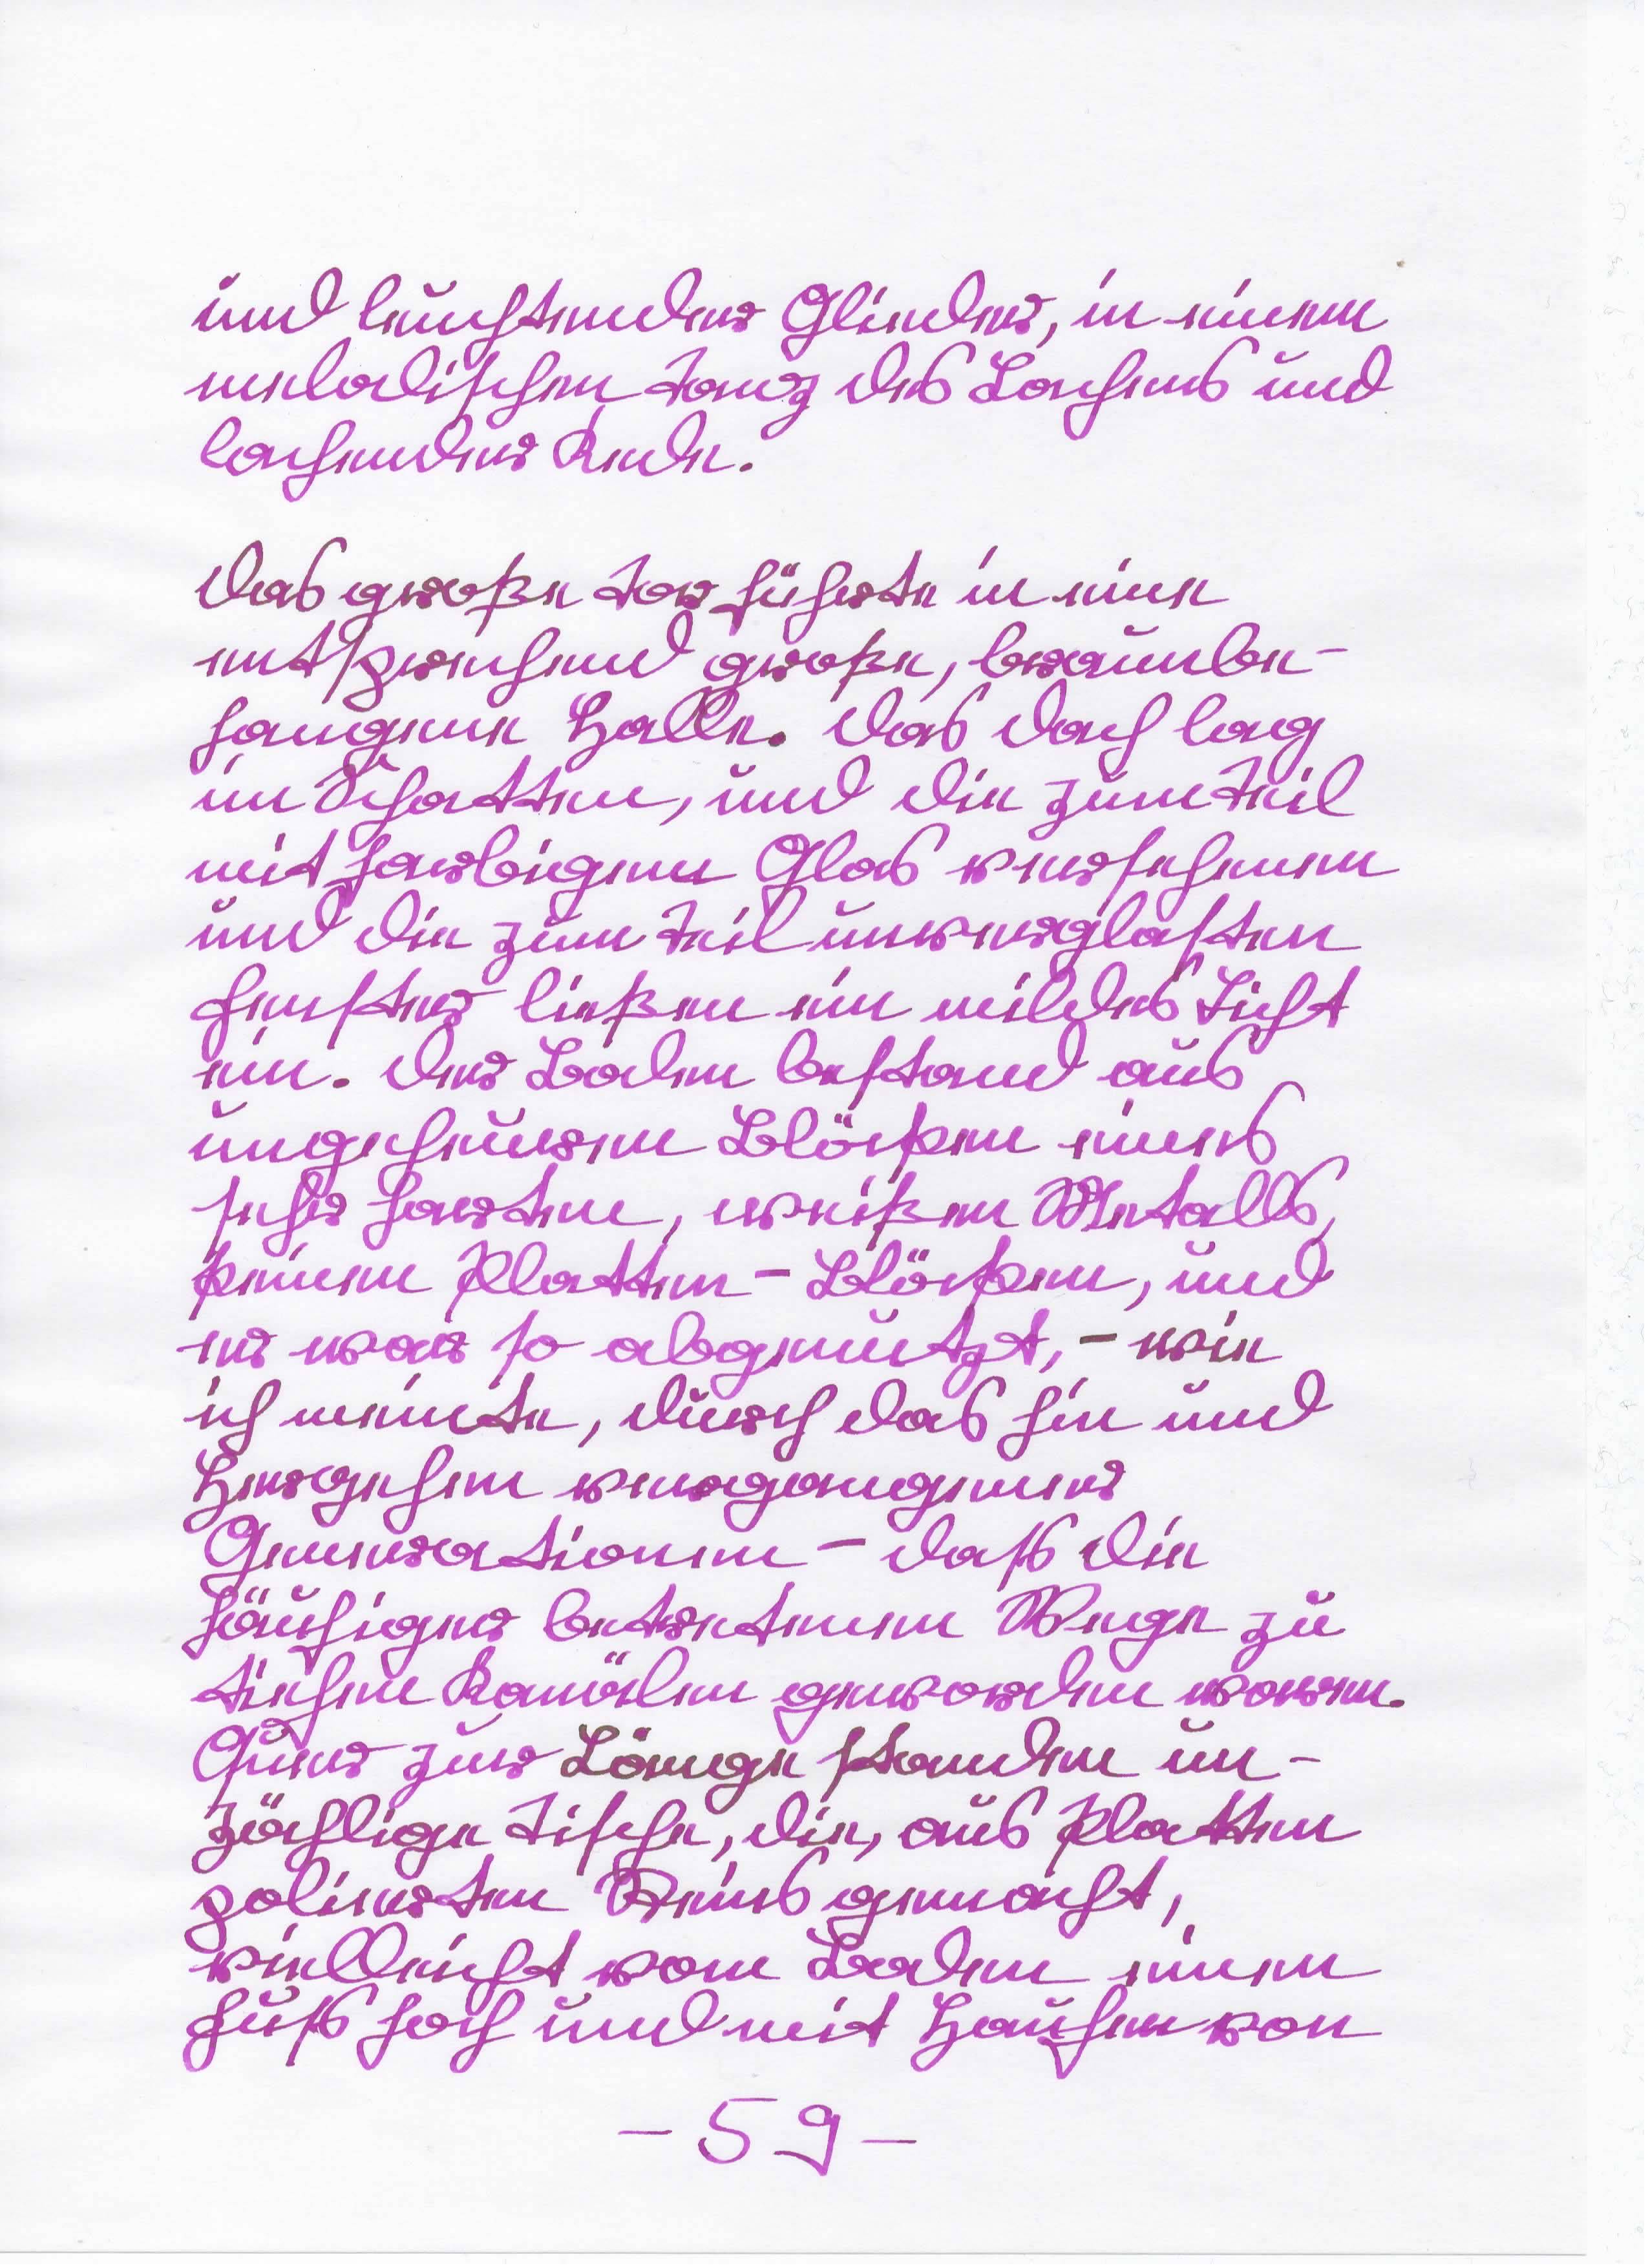 und leuchtender Glieder, in einem
melodischen Tanz des Lachens und
lachender Rede.
Das große Tor führte in eine
entsprechend große, braunbe-
hangene Halle. Das Dach lag
im Schatten, und die zum Teil
mit farbigem Glas versehenen
und die zum Teil unverglasten
Fenster ließen ein mildes Licht
ein. Der Boden bestand aus
ungeheuren Blöcken eines
sehr harten, weißen Metalls,
keinen Platten – Blöcken, und
er war so abgenutzt, – wie
ich meinte, durch das hin und
Hergehen vergangener
Generationen – dass die
häufiger betretenen Wege zu
tiefen Kanälen geworden waren.
Quer zur Länge standen un-
zählige Tische, die, aus Platten
polierten Steins gemacht,
vielleicht vom Boden einen
Fuß hoch und mit Haufen von
– 59 –